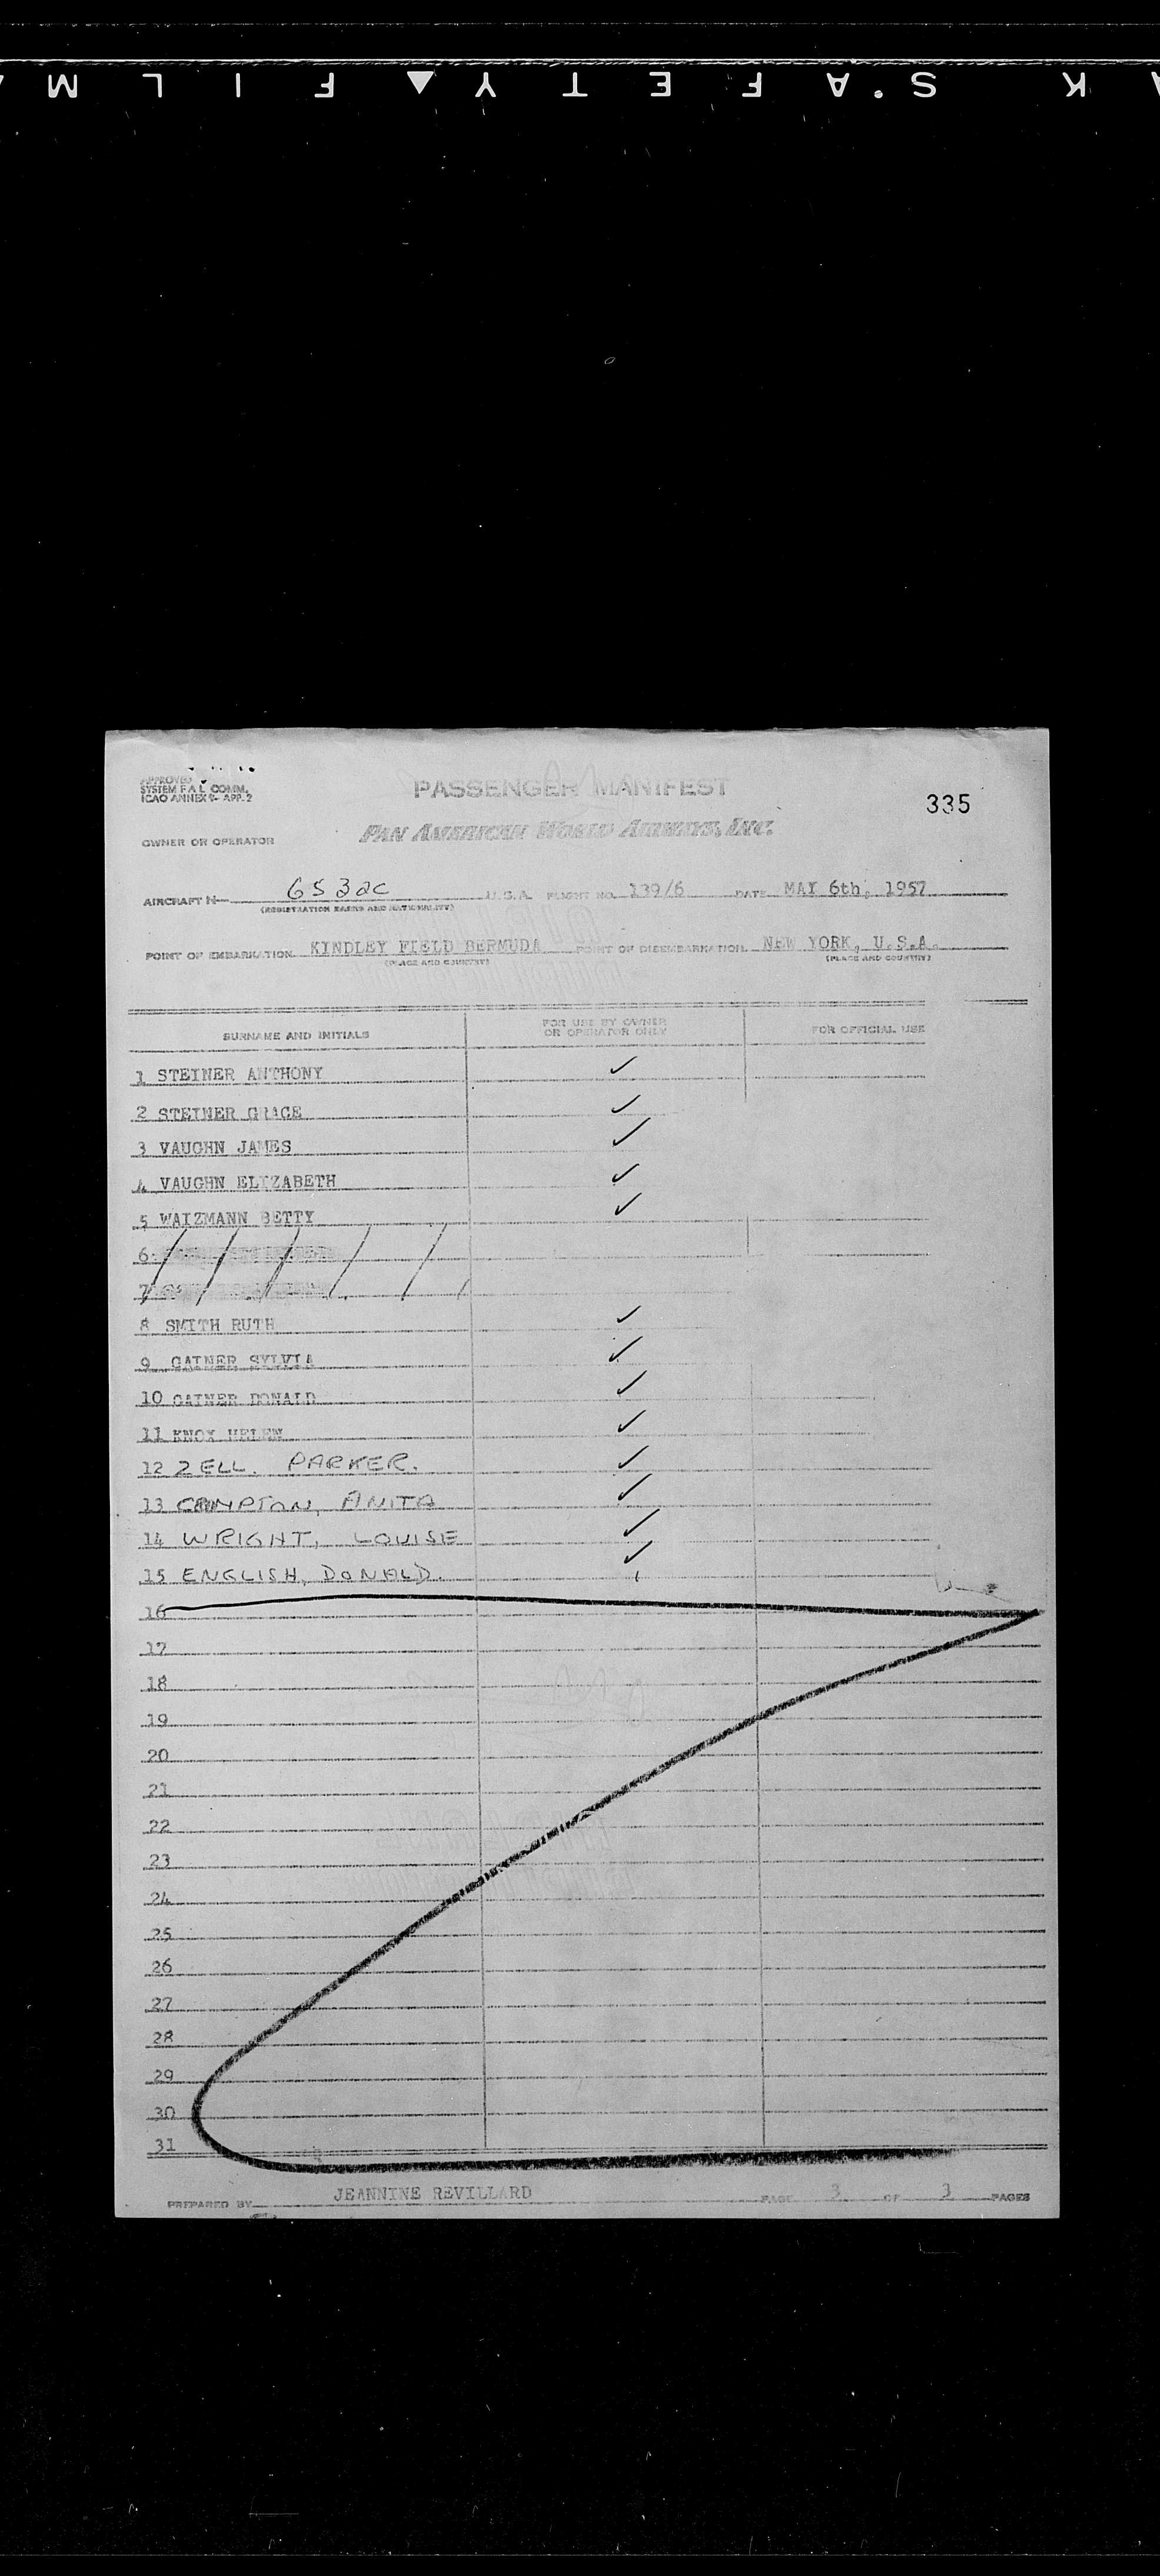 K S.AFETY▲FILM
APPROVED
SYSTEM F A L COMM.
ICAO ANNEX 9- APP. 2
PASSENGER MANIFEST
335
OWNER OR OPERATOR
PAN AMERICAN WORLD AIRWAYS, INC.
AIRCRAFT N- 6532C U.S.A. FLIGHT NO. 139/6 DATE MAY 6th, 1957
(REGISTRATION MARKS AND NATIONALITY)
POINT OF EMBARKATION KINDLEY FIELD BERMUDA POINT OF DISEMBARKATION NEW YORK, U.S.A.
(PLACE AND COUNTRY) (PLACE AND COUNTRY)
SURNAME AND INITIALS FOR USE BY OWNER OR OPERATOR ONLY FOR OFFICIAL USE
1 STEINER ANTHONY ✓
2 STEINER GRACE ✓
3 VAUGHN JAMES ✓
4 VAUGHN ELIZABETH ✓
5 WAIZMANN BETTY ✓
6
7
8 SMITH RUTH ✓
9 GAINER SYLVIA ✓
10 GAINER DONALD ✓
11 KNOX HELEN ✓
12 ZELL. PARKER. ✓
13 COMPTON, ANITA ✓
14 WRIGHT, LOUISE ✓
15 ENGLISH, DONALD. ✓
16
17
18
19
20
21
22
23
24
25
26
27
28
29
30
31
PREPARED BY JEANNINE REVILLARD PAGE 3 OF 3 PAGES